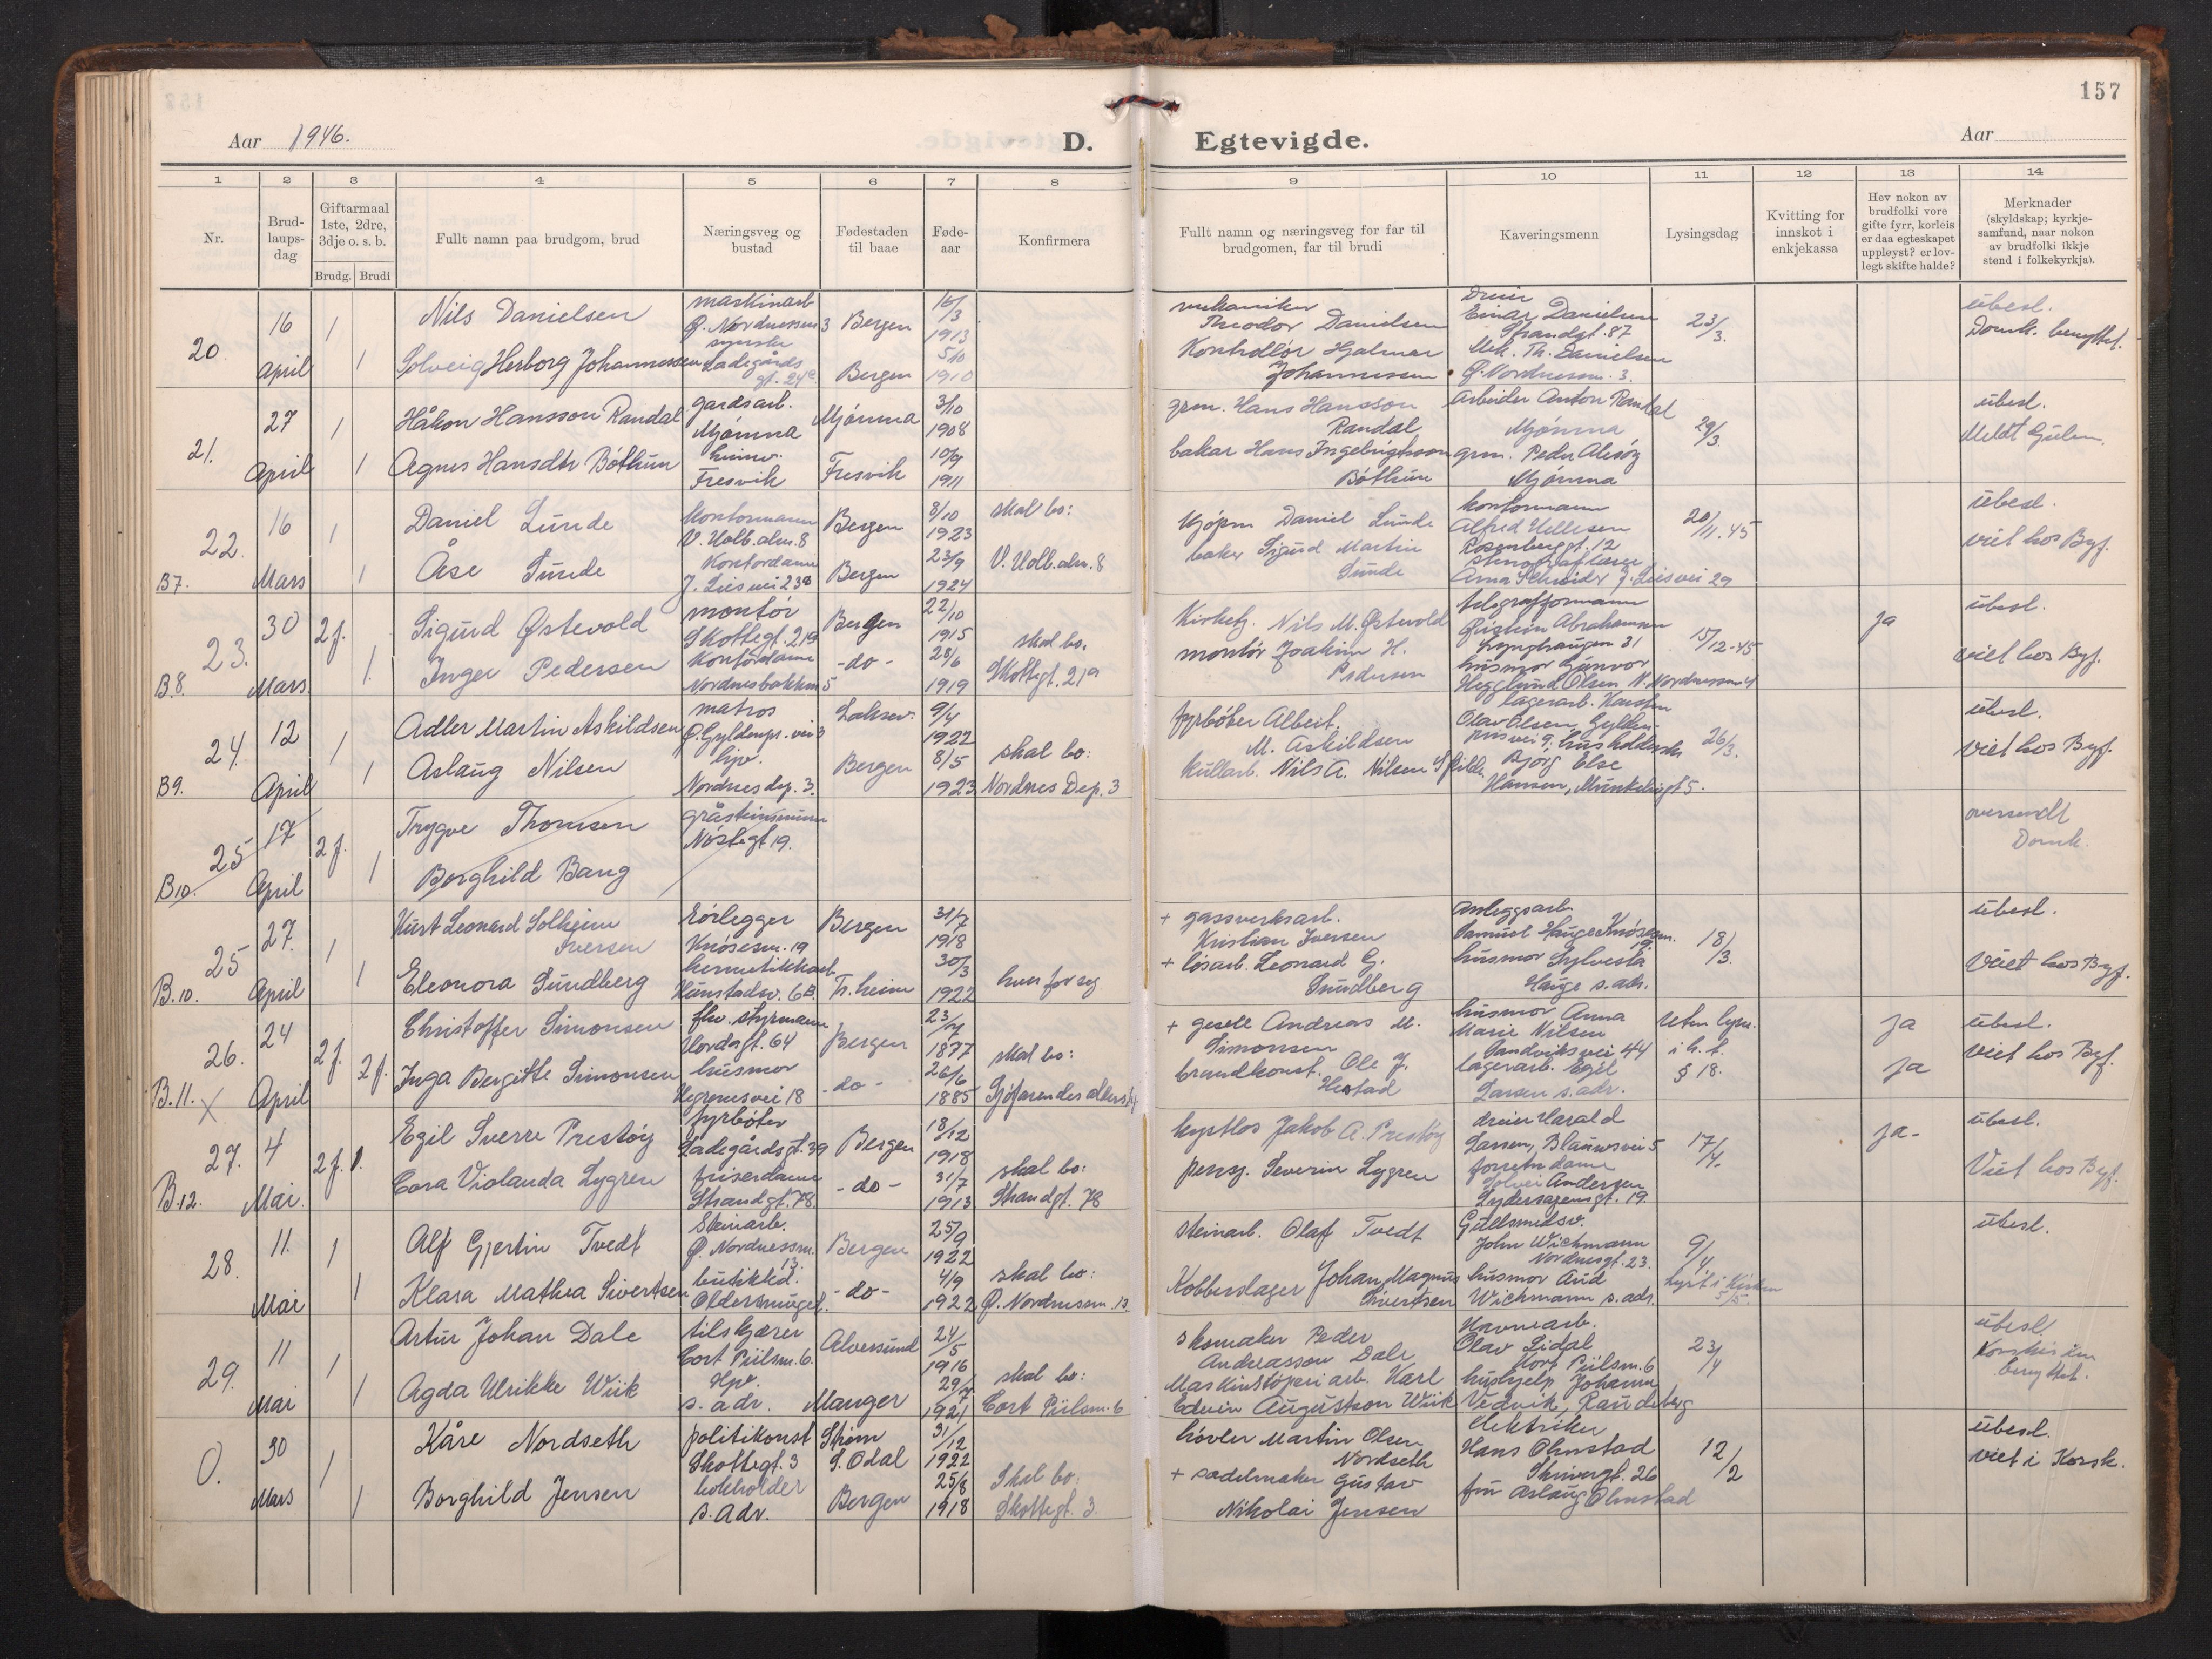 157
Aar 1946.
D. Egtevigde.
Aar
1 2 3 4 5 6 7 8 9 10 11 12 13 14
Nr.
Brud-
laups-
dag
Giftarmaal
1ste, 2dre,
3dje o. s. b.
Brudg. Brudi
Fullt namn paa brudgom, brud
Næringsveg og
bustad
Fødestaden
til baae
Føde-
aar
Konfirmera
Fullt namn og næringsveg for far til
brudgomen, far til brudi
Kaveringsmenn
Lysingsdag
Kvitting for
innskot i
enkjekassa
Hev nokon av
brudfolki vore
gifte fyrr, korleis
er daa egteskapet
uppløyst? er lov-
legt skifte halde?
Merknader
(skyldskap; kyrkje-
samfund, naar nokon
av brudfolki ikkje
stend i folkekyrkja).
20.
16
April
1
1
Nils Danielsen
Solveig Herborg Johannessen
maskinarb
Ø. Nordnessm 3
syerske
Ladegårds
gt. 24c
Bergen
Bergen
16/3
1913
5/10
1910
mekaniker
Theodor Danielsen
Kontrollør Hjalmar
Johannessen
Dreier
Einar Danielsen
Strandgt. 87
Mek. Th. Danielsen
Ø. Nordnessm. 3.
23/3.
übesl.
Domk. benyttet.
21.
27
April
1
1
Håkon Hansson Randal
Agnes Hansdtr Bøthun
gardsarb.
Mjømna
heimv.
Fresvik
Mjømna
Fresvik
3/10
1908
10/9
1911
grm. Hans Hansson
Randal
bakar Hans Ingebrigtsson
Bøthun
Arbeider Anton Randal
Mjømna
grm. Peder
Mjømna
29/3.
übesl.
Meldt Gulen.
22.
B7.
16
Mars
1
1
Daniel Lunde
Åse Sunde
Kontormann
V. Holb. alm. 8
Kontordame
J. Lies vei 23B
Bergen
Bergen
8/10
1923
23/9
1924
skal bo:
V. Holb. alm. 8
Kjøpm Daniel Lunde
baker Sigurd Martin
Sunde
kontormann
Alfred Hellesen
Rosenberggt. 12
Anna Schrøder J. Lies vei 29
20/11.45
übesl.
viet hos Byf.
23.
B.8.
30
Mars.
2 f.
1.
Sigurd Østevold
Inger Pedersen
montør
Skottegt. 21a
Kontordame
Nordnesbakken 5
Bergen
-do-
22/10
1915
28/6
1919
skal bo.
Skottegt. 21a
Kirketj. Nils M. Østevold
montør Joakim H.
Pedersen
telegrafformann
Øistein Abrahamsen
Lynghaugen 31
husmor Gunvor
Hegglund Olsen N. Nordnessm 4
15/12-45
ja
übesl.
viet hos Byf.
24.
B9.
12
April
1
1
Adler Martin Askildsen
Aslaug Nilsen
matros
Ø. Gyldenpr. vei 3
hjv.
Nordnes dep. 3.
Laksev.
Bergen
9/4
1922
8/5
1923
skal bo:
Nordnes Dep. 3
fyrbøter Albert.
M. Askildsen
kullarb. Nils A. Nilsen
lagerarb. Karsten
Olav Olsen, Gylden-
prisvei 9, husholderske
Bjørg Else
Hansen, Munkebugt 5.
26/3.
übesl.
viet hos Byf.
25
B10.
17
April
2 f.
1
Trygve Thomsen
Borghild Bang
gråsteinsminer
Nøstegt 19.
oversendt
Domk.
25
B.10.
27.
April
1
1
Kurt Leonard Solheim
Iversen
Eleonora Sundberg
Rørlegger
Knøsesm. 19
hermetikkarb
Hunstadsv. 6B.
Bergen
Tr. heim
31/7
1918
30/3
1922
hver for seg
+ gassverksarb.
Kristian Iversen
+ løsarb. Leonard G.
Sundberg
Anleggsarb.
Samuel Hauge Knøsesm.
19
husmor Sylvesta
Hauge s. adr.
18/3.
übesl.
Viet hos Byf.
26.
B.11. x
24
April
2 f.
2 f.
Christoffer Simonsen
Inga Bergitte Simonsen
fhv. styrmann
Hordagt. 64
husmor
Hegrenesvei 18
Bergen
-do-
23/7
1877
26/6
1885
skal bo:
Sjøfarendes
+ gesell Andreas M.
Simonsen
brandkonst. Ole J.
Hestad
husmor Anna
Marie Nilsen
Sandviksvei 44
lagerarb. Egil
Larsen s. adr.
Uten lysn.
i h. t.
§ 18.
ja
ja
übesl.
viet hos Byf.
27.
B.12.
4
Mai.
2 f.
1.
Egil Sverre Prestøy
Cora Violanda Lygren
fyrbøter
Ladegårdsgt. 39
friserdame
Strandgt. 78.
Bergen
-do-
18/12
1918
31/7
1913
skal bo:
Strandgt. 78
kystlos Jakob A. Prestøy
pensj. Severin Lygren
dreier Harald
Larsen, Blaauwsvei 5
forretn dame
Solvei Andersen
Lydersagensgt. 19.
17/4.
ja-
übesl.
Viet hos Byf.
28.
11.
Mai
1
1
Alf Gjertin Tvedt
Klara Mathea Sivertsen
Steinarb.
Ø. Nordnessm.
13.
butikkd.
Oldersmuget.
Bergen
-do-
25/9
1922
4/9
1922
skal bo:
Ø. Nordnessm. 13.
steinarb. Olaf Tvedt
Kobberslager Johan Magnus
Sivertsen
Gullsmedsv.
John Wichmann
Nordnesgt. 23.
husmor Aud
Wichmann s. adr.
9/4
Lyst i Kirken
5/5.
übesl.
29.
11
Mai
1
1
Artur Johan Dale
Agda Ulrikke Wiik
tilskjærer
Cort Piilsm. 6.
Hpv.
s. adr.
Alversund
Manger
24/5
1916
29/7
1921
skal bo:
Cort Piilsm. 6
skomaker Peder
Andreasson Dale
Maskinstøperiarb. Karl
Edvin Augustson Wiik
Havnearb.
Olav Lidal
Kort Piilsm. 6
hushjelp Johanne
Vedvik, Randeberg
23/4
übesl.
Korskirken
benyttet.
0.
30
Mars
1
1
Kåre Nordseth
Borghild Jensen
politikonst
Skottegt. 3
bokholder
s. adr.
Strøm
S. Odal
Bergen
31/12
1922
25/8
1918
Skal bo:
Skottegt. 3.
høvler Martin Olsen
Nordseth
+ sadelmaker Gustav
Nikolai Jensen
elektriker
Hans Olmstad
Skivergt. 26
fru Aslaug Olmstad
12/2
übesl.
viet i Korsk.